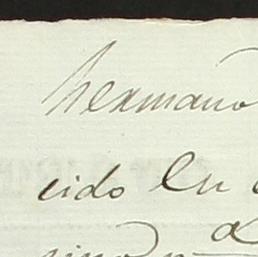 hermano
cido en